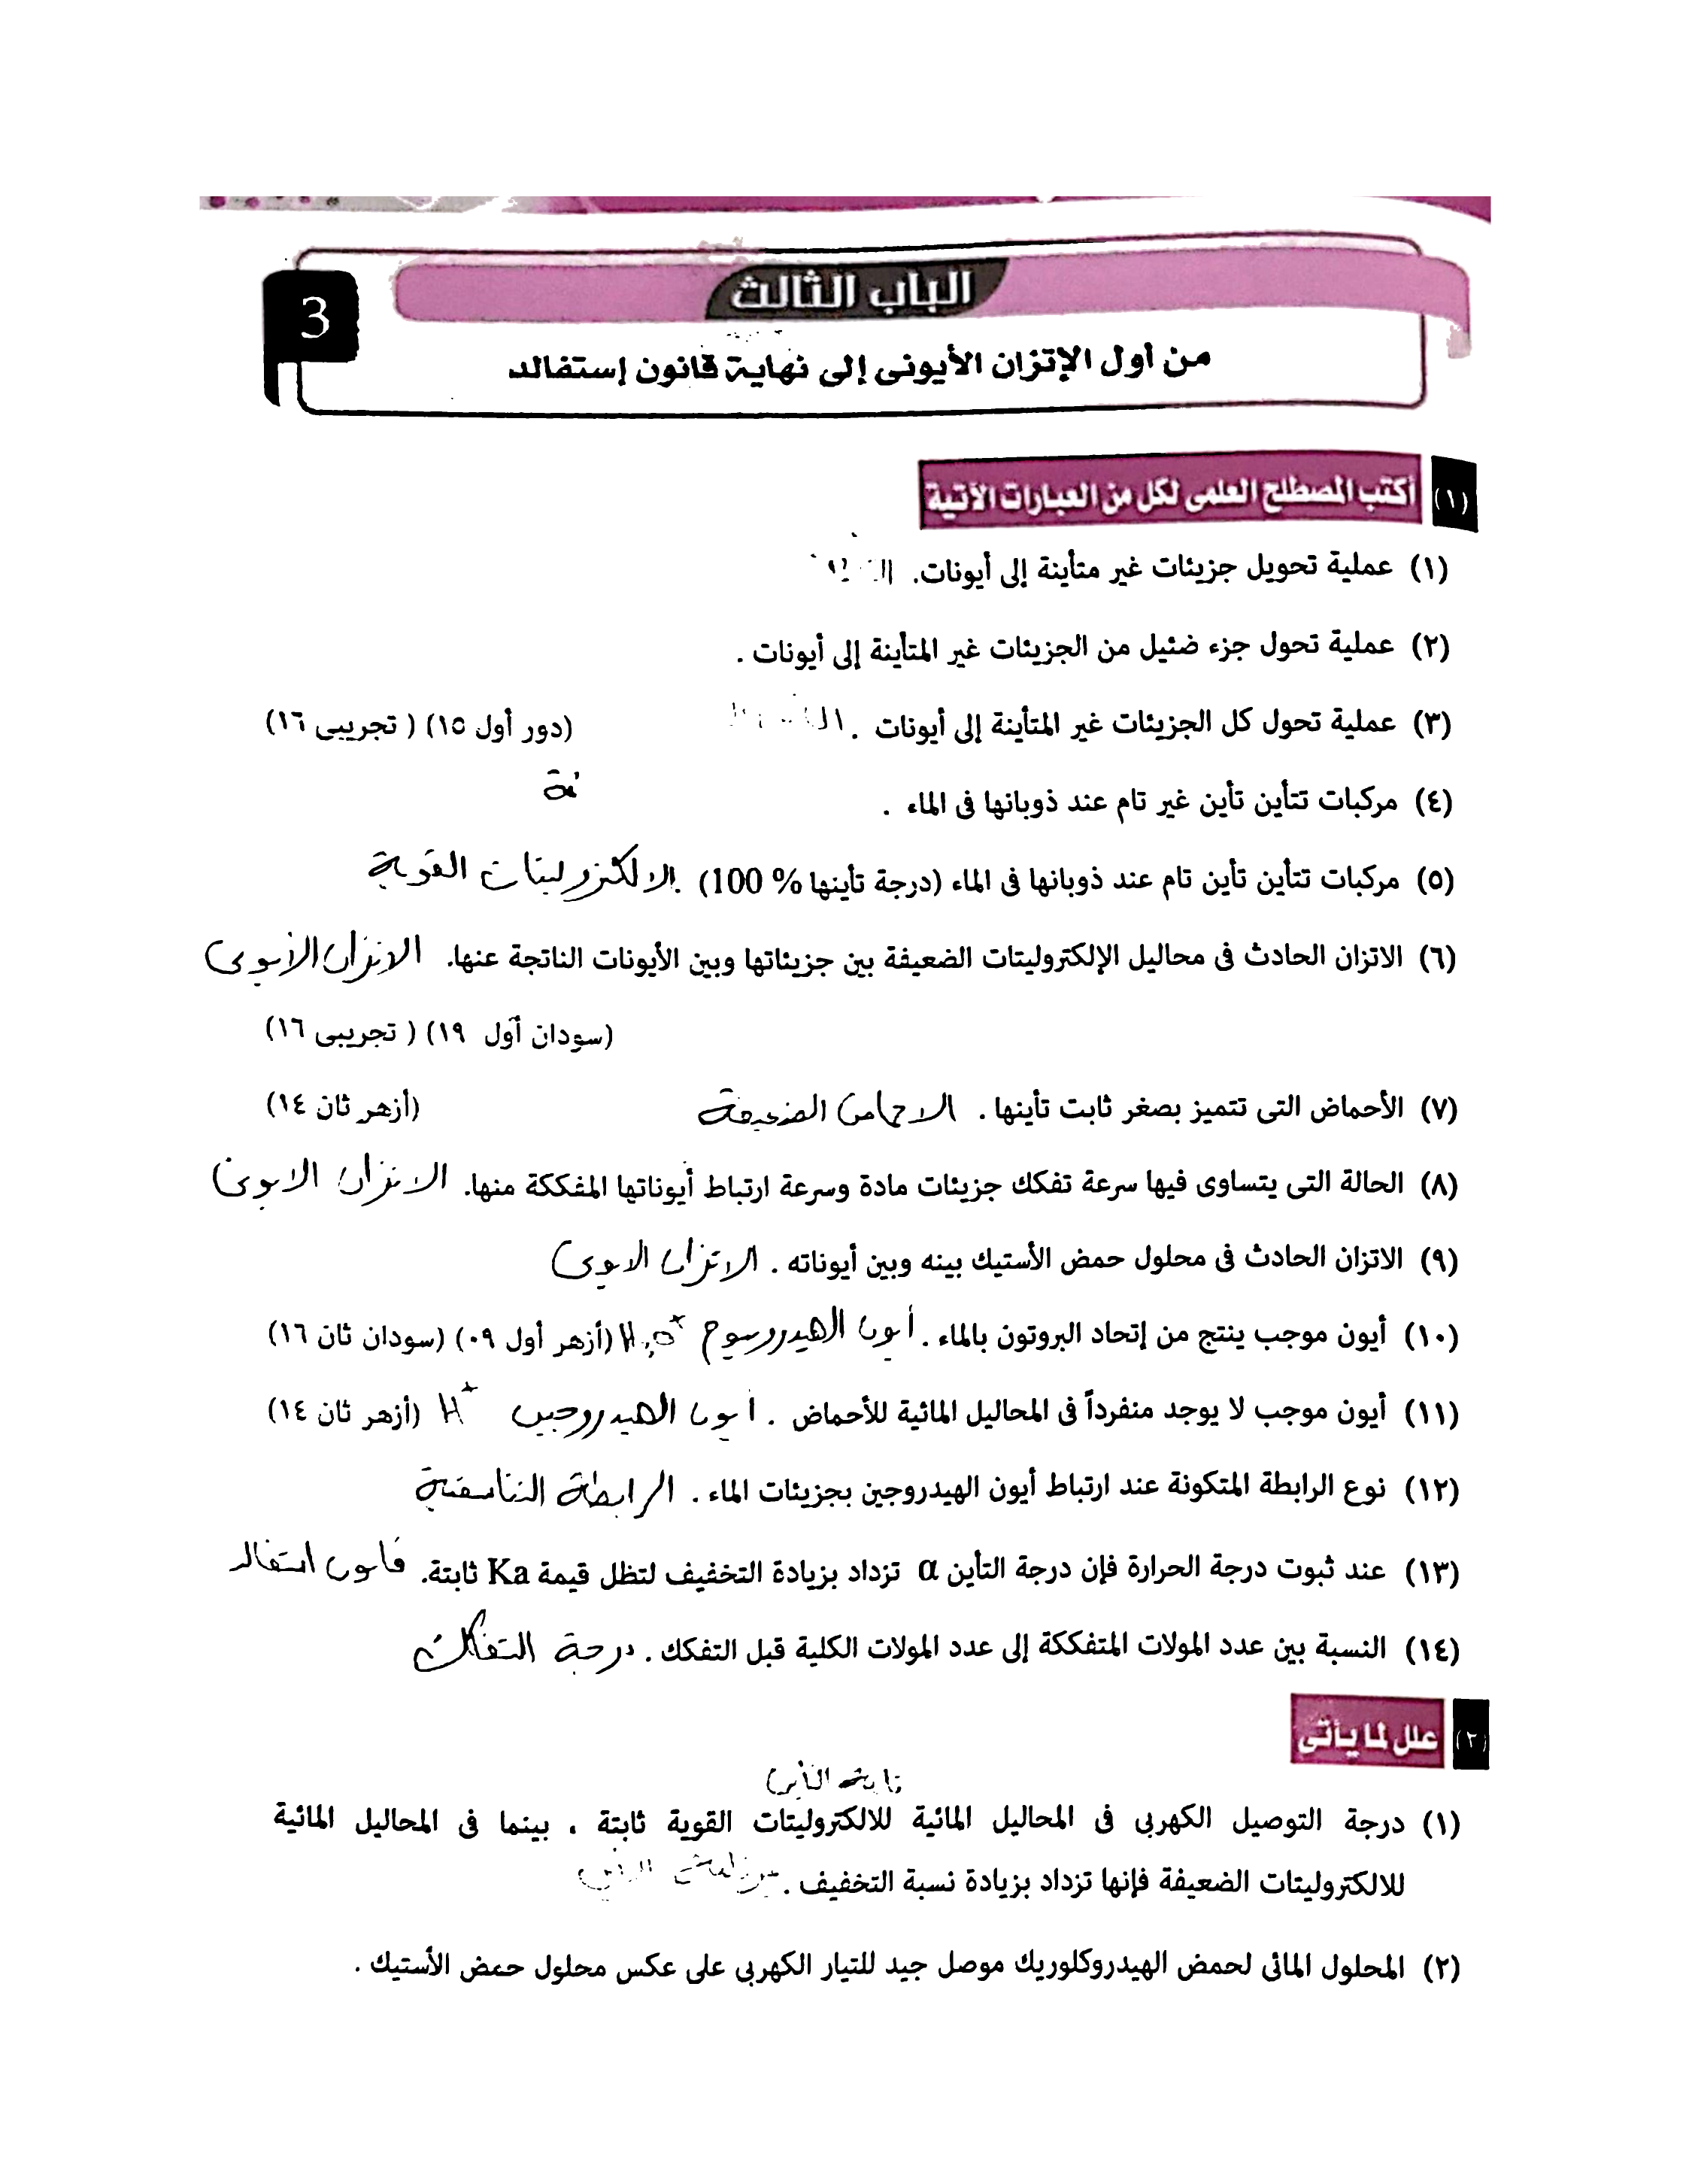 الباب الثالث
3
من أول الإتزان الأيونى إلى نهاية قانون إستفالد
(١) أكتب المصطلح العلمى لكل من العبارات الآتية
(١) عملية تحويل جزيئات غير متأينة إلى أيونات.
(٢) عملية تحول جزء ضئيل من الجزيئات غير المتأينة إلى أيونات .
(٣) عملية تحول كل الجزيئات غير المتأينة إلى أيونات . (دور أول ١٥) ( تجريبى ١٦)
(٤) مركبات تتأين تأين غير تام عند ذوبانها فى الماء .
(٥) مركبات تتأين تأين تام عند ذوبانها فى الماء (درجة تأينها % 100) . الالكتروليتات القوية
(٦) الاتزان الحادث فى محاليل الإلكتروليتات الضعيفة بين جزيئاتها وبين الأيونات الناتجة عنها. الاتزان الأيونى
(سودان أول ١٩) ( تجريبى ١٦)
(٧) الأحماض التى تتميز بصغر ثابت تأينها . الاحماض الضعيفة (أزهر ثان ١٤)
(٨) الحالة التى يتساوى فيها سرعة تفكك جزيئات مادة وسرعة ارتباط أيوناتها المفككة منها. الاتزان الايونى
(٩) الاتزان الحادث فى محلول حمض الأستيك بينه وبين أيوناته . الاتزان الايونى
(١٠) أيون موجب ينتج من إتحاد البروتون بالماء . أيون الهيدرونيوم H₃O⁺ (أزهر أول ٠٩) (سودان ثان ١٦)
(١١) أيون موجب لا يوجد منفرداً فى المحاليل المائية للأحماض . أيون الهيدروجين H⁺ (أزهر ثان ١٤)
(١٢) نوع الرابطة المتكونة عند ارتباط أيون الهيدروجين بجزيئات الماء . الرابطة التناسقية
(١٣) عند ثبوت درجة الحرارة فإن درجة التأين α تزداد بزيادة التخفيف لتظل قيمة Ka ثابتة. قانون استفالد
(١٤) النسبة بين عدد المولات المتفككة إلى عدد المولات الكلية قبل التفكك . درجة التفكك
(٢) علل لما يأتى
(١) درجة التوصيل الكهربى فى المحاليل المائية للالكتروليتات القوية ثابتة ، بينما فى المحاليل المائية
للالكتروليتات الضعيفة فإنها تزداد بزيادة نسبة التخفيف .
(٢) المحلول المائى لحمض الهيدروكلوريك موصل جيد للتيار الكهربى على عكس محلول حمض الأستيك .